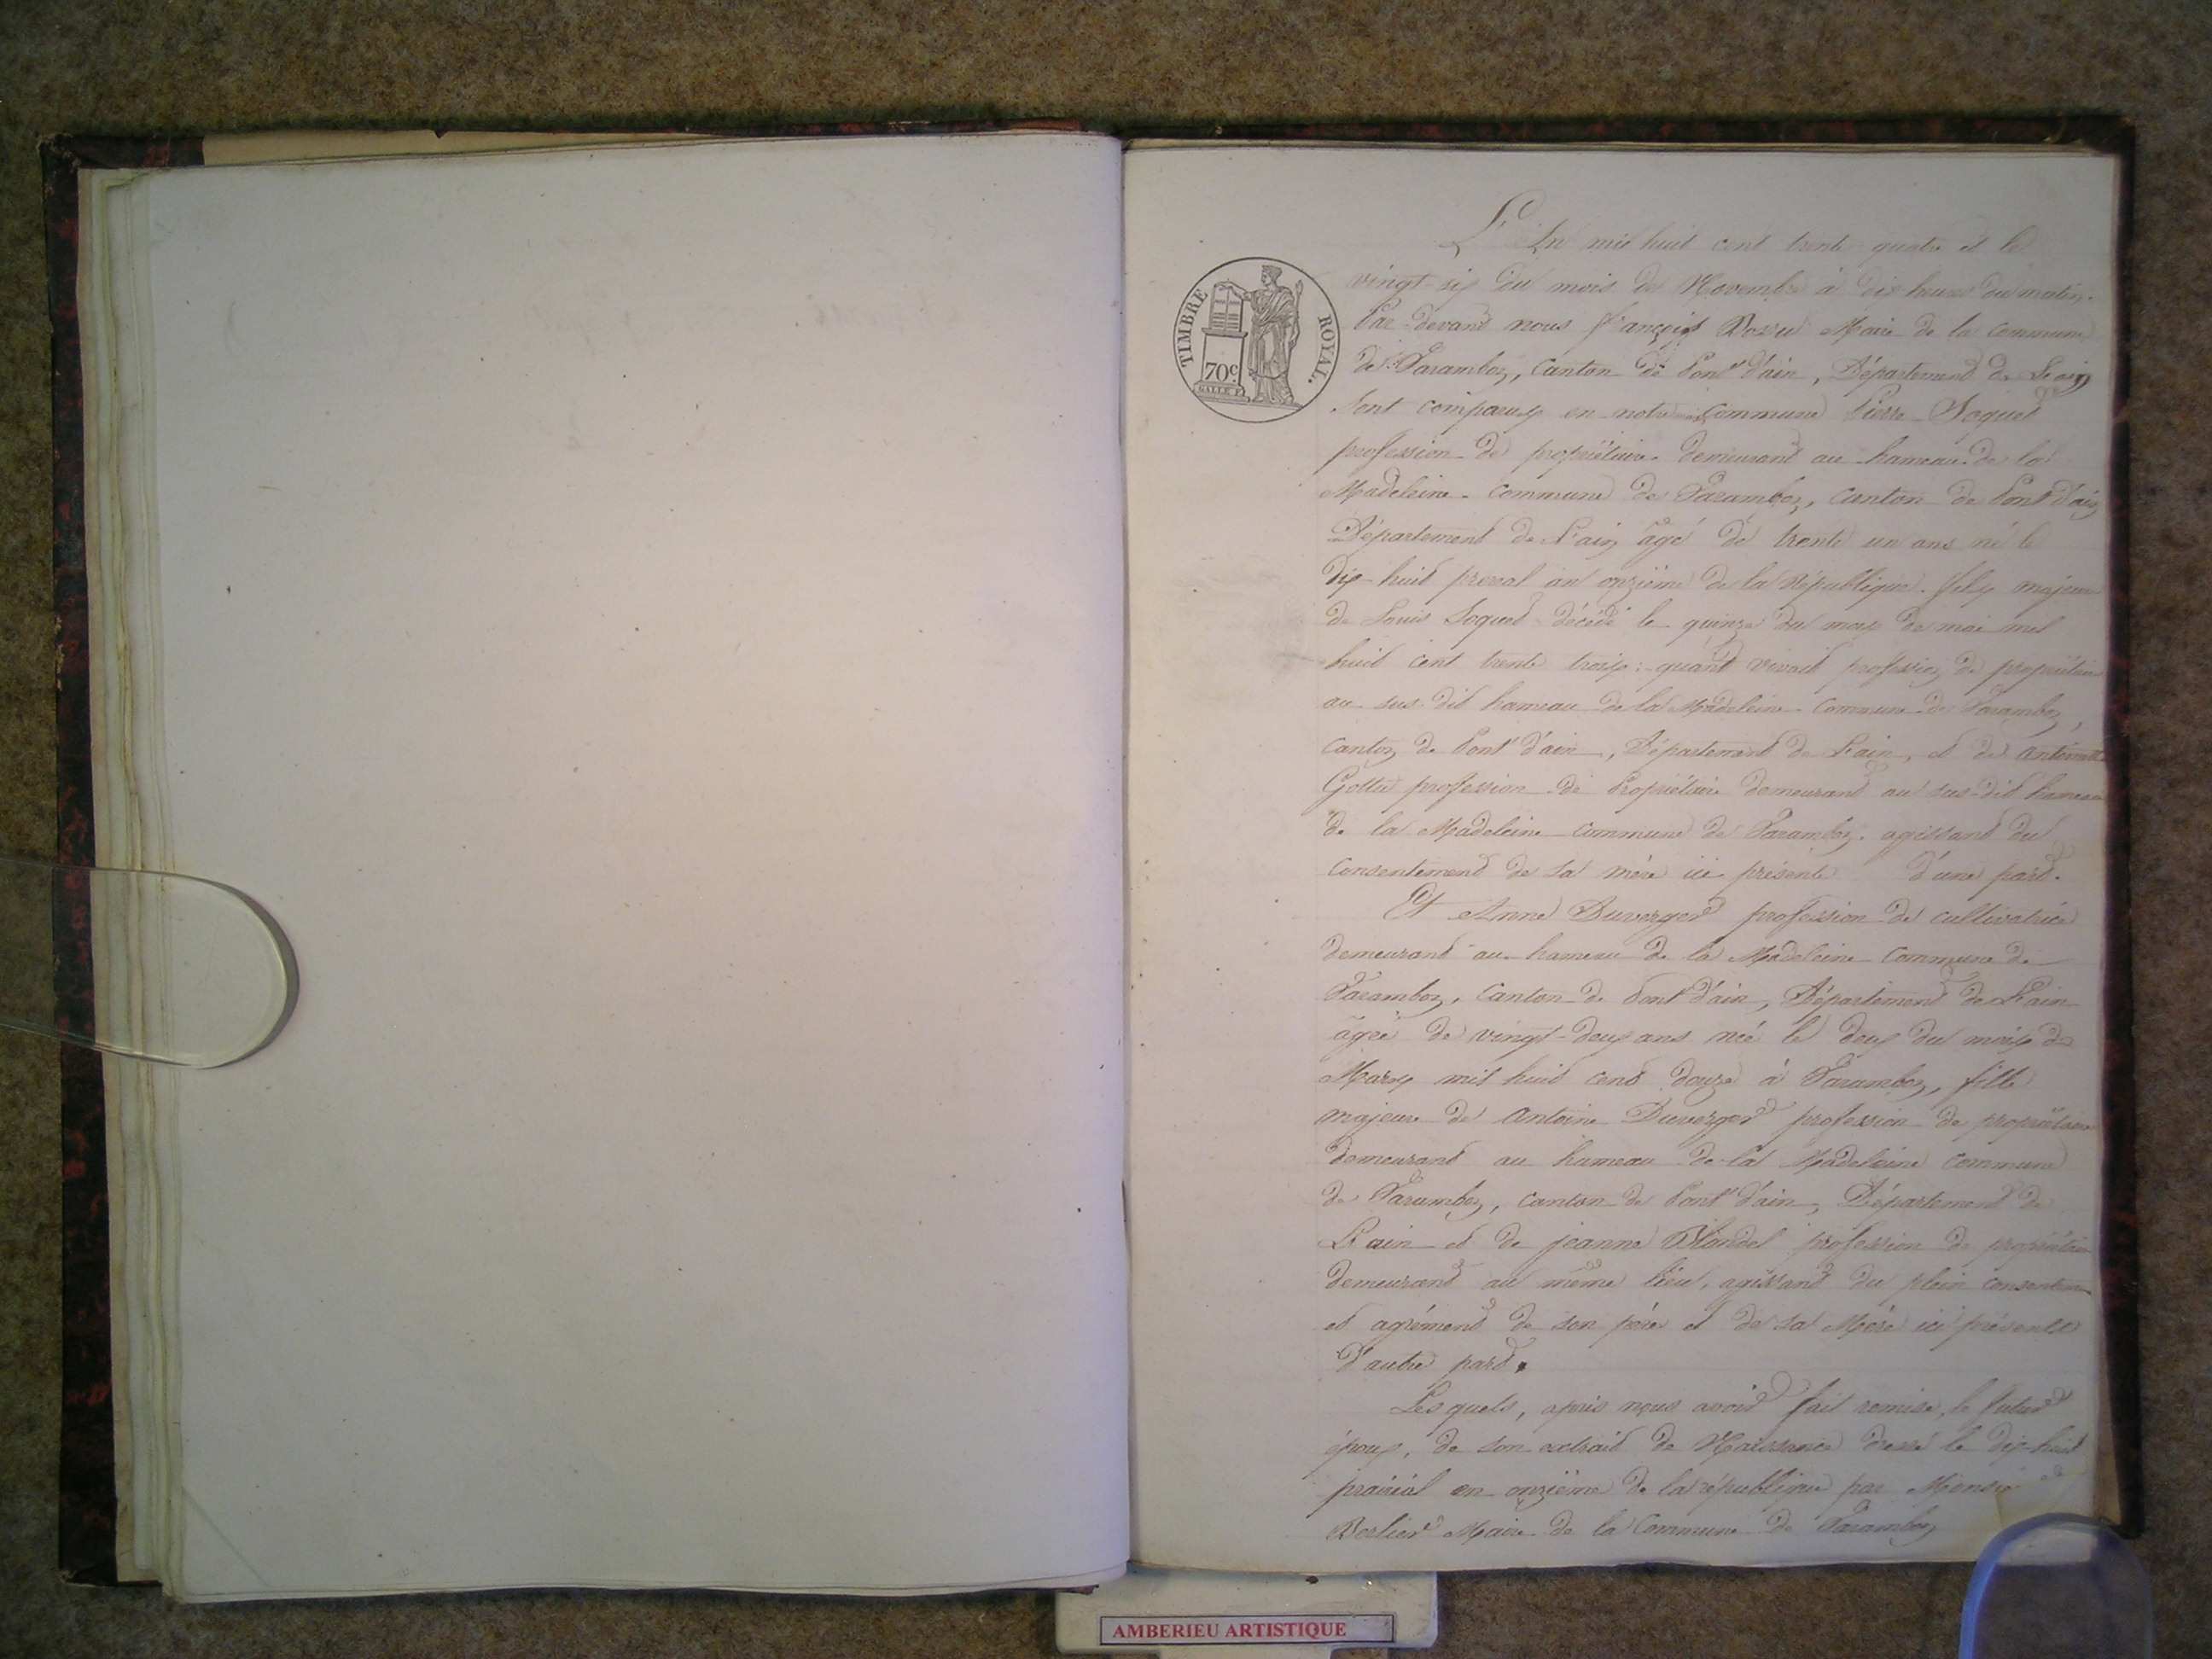 TIMBRE ROYAL.
70c.
L'An mil huit cent trente quatre et le
vingt-six du mois de Novembre à dix heures du matin.
Par-devant nous françois Maire de la commune
de Varambon, Canton de Pont d'ain, Département de L'ain
Sont comparus en notre Commune Pierre Soquet
profession de propriétaire demeurant au hameau de la
Madeleine commune de Varambon, canton de Pont d'ain
Département de L'ain âgé de trente un ans né le
dix-huit preral an onzième de la République. fils majeur
de Louis Soquet décédé le quinze du mois de mai mil
huit cent trente trois: quand vivait profession de propriétaire
au sus-dit hameau de la Madeleine Commune de Varambon,
canton de Pont d'ain, Département de L'ain, et de antoinette
Gottu profession de Propriétaire demeurant au sus-dit hameau
de la Madeleine commune de Varambon. agissant du
consentement de sa mère ici présente d'une part.
Et Anne Duverger profession de cultivatrice
demeurant au hameau de la Madeleine Commune de
Varambon, Canton de Pont d'ain, Département de L'ain
âgée de vingt-deux ans née le deux du mois de
Mars mil huit cent douze à Varambon, fille
majeure de Antoine Duverger profession de propriétaire
demeurant au hameau de la Madeleine commune
de Varambon, canton de Pont d'ain, Département de
L'ain et de jeanne Blondel profession de propriétaire
demeurant au même lieu, agissant du plein consentement
et agrément de son père et de sa Mère ici présents
d'autre part.
Les quels, après nous avoir fait remise, le futur
époux, de son extrait de Naissance dressé le dix-huit
prairial en onzième de la république par Monsieur
Berlier Maire de la Commune de Varambon
AMBERIEU ARTISTIQUE